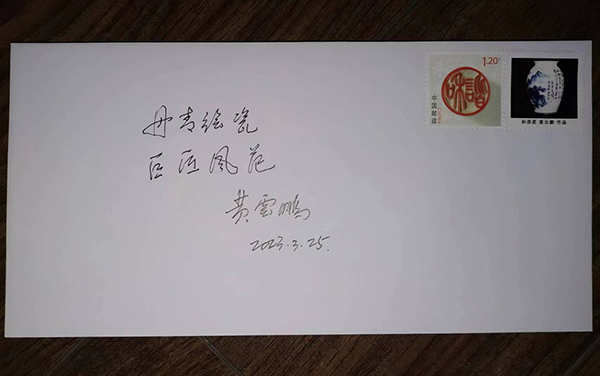 丹青绘瓷
巨匠风范
黄雲鹏
2023.3.25.
1.20元
和諧
中国邮政
黄云鹏 作品